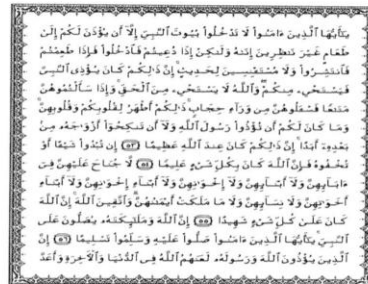 يَٰٓأَيُّهَا ٱلَّذِينَ ءَامَنُوا۟ لَا تَدْخُلُوا۟ بُيُوتَ ٱلنَّبِىِّ إِلَّآ أَن يُؤْذَنَ لَكُمْ إِلَىٰ
طَعَامٍ غَيْرَ نَٰظِرِينَ إِنَىٰهُ وَلَٰكِنْ إِذَا دُعِيتُمْ فَٱدْخُلُوا۟ فَإِذَا طَعِمْتُمْ
فَٱنتَشِرُوا۟ وَلَا مُسْتَـْٔنِسِينَ لِحَدِيثٍ إِنَّ ذَٰلِكُمْ كَانَ يُؤْذِى ٱلنَّبِىَّ
فَيَسْتَحْىِۦ مِنكُمْ وَٱللَّهُ لَا يَسْتَحْىِۦ مِنَ ٱلْحَقِّ وَإِذَا سَأَلْتُمُوهُنَّ
مَتَٰعًا فَسْـَٔلُوهُنَّ مِن وَرَآءِ حِجَابٍ ذَٰلِكُمْ أَطْهَرُ لِقُلُوبِكُمْ وَقُلُوبِهِنَّ
وَمَا كَانَ لَكُمْ أَن تُؤْذُوا۟ رَسُولَ ٱللَّهِ وَلَآ أَن تَنكِحُوٓا۟ أَزْوَٰجَهُۥ مِنۢ
بَعْدِهِۦٓ أَبَدًا إِنَّ ذَٰلِكُمْ كَانَ عِندَ ٱللَّهِ عَظِيمًا ﴿٥٣﴾ إِن تُبْدُوا۟ شَيْـًٔا أَوْ
تُخْفُوهُ فَإِنَّ ٱللَّهَ كَانَ بِكُلِّ شَىْءٍ عَلِيمًا ﴿٥٤﴾ لَّا جُنَاحَ عَلَيْهِنَّ فِىٓ
ءَابَآئِهِنَّ وَلَآ أَبْنَآئِهِنَّ وَلَآ إِخْوَٰنِهِنَّ وَلَآ أَبْنَآءِ إِخْوَٰنِهِنَّ وَلَآ أَبْنَآءِ
أَخَوَٰتِهِنَّ وَلَا نِسَآئِهِنَّ وَلَا مَا مَلَكَتْ أَيْمَٰنُهُنَّ وَٱتَّقِينَ ٱللَّهَ إِنَّ ٱللَّهَ
كَانَ عَلَىٰ كُلِّ شَىْءٍ شَهِيدًا ﴿٥٥﴾ إِنَّ ٱللَّهَ وَمَلَٰٓئِكَتَهُۥ يُصَلُّونَ عَلَى
ٱلنَّبِىِّ يَٰٓأَيُّهَا ٱلَّذِينَ ءَامَنُوا۟ صَلُّوا۟ عَلَيْهِ وَسَلِّمُوا۟ تَسْلِيمًا ﴿٥٦﴾ إِنَّ
ٱلَّذِينَ يُؤْذُونَ ٱللَّهَ وَرَسُولَهُۥ لَعَنَهُمُ ٱللَّهُ فِى ٱلدُّنْيَا وَٱلْءَاخِرَةِ وَأَعَدَّ